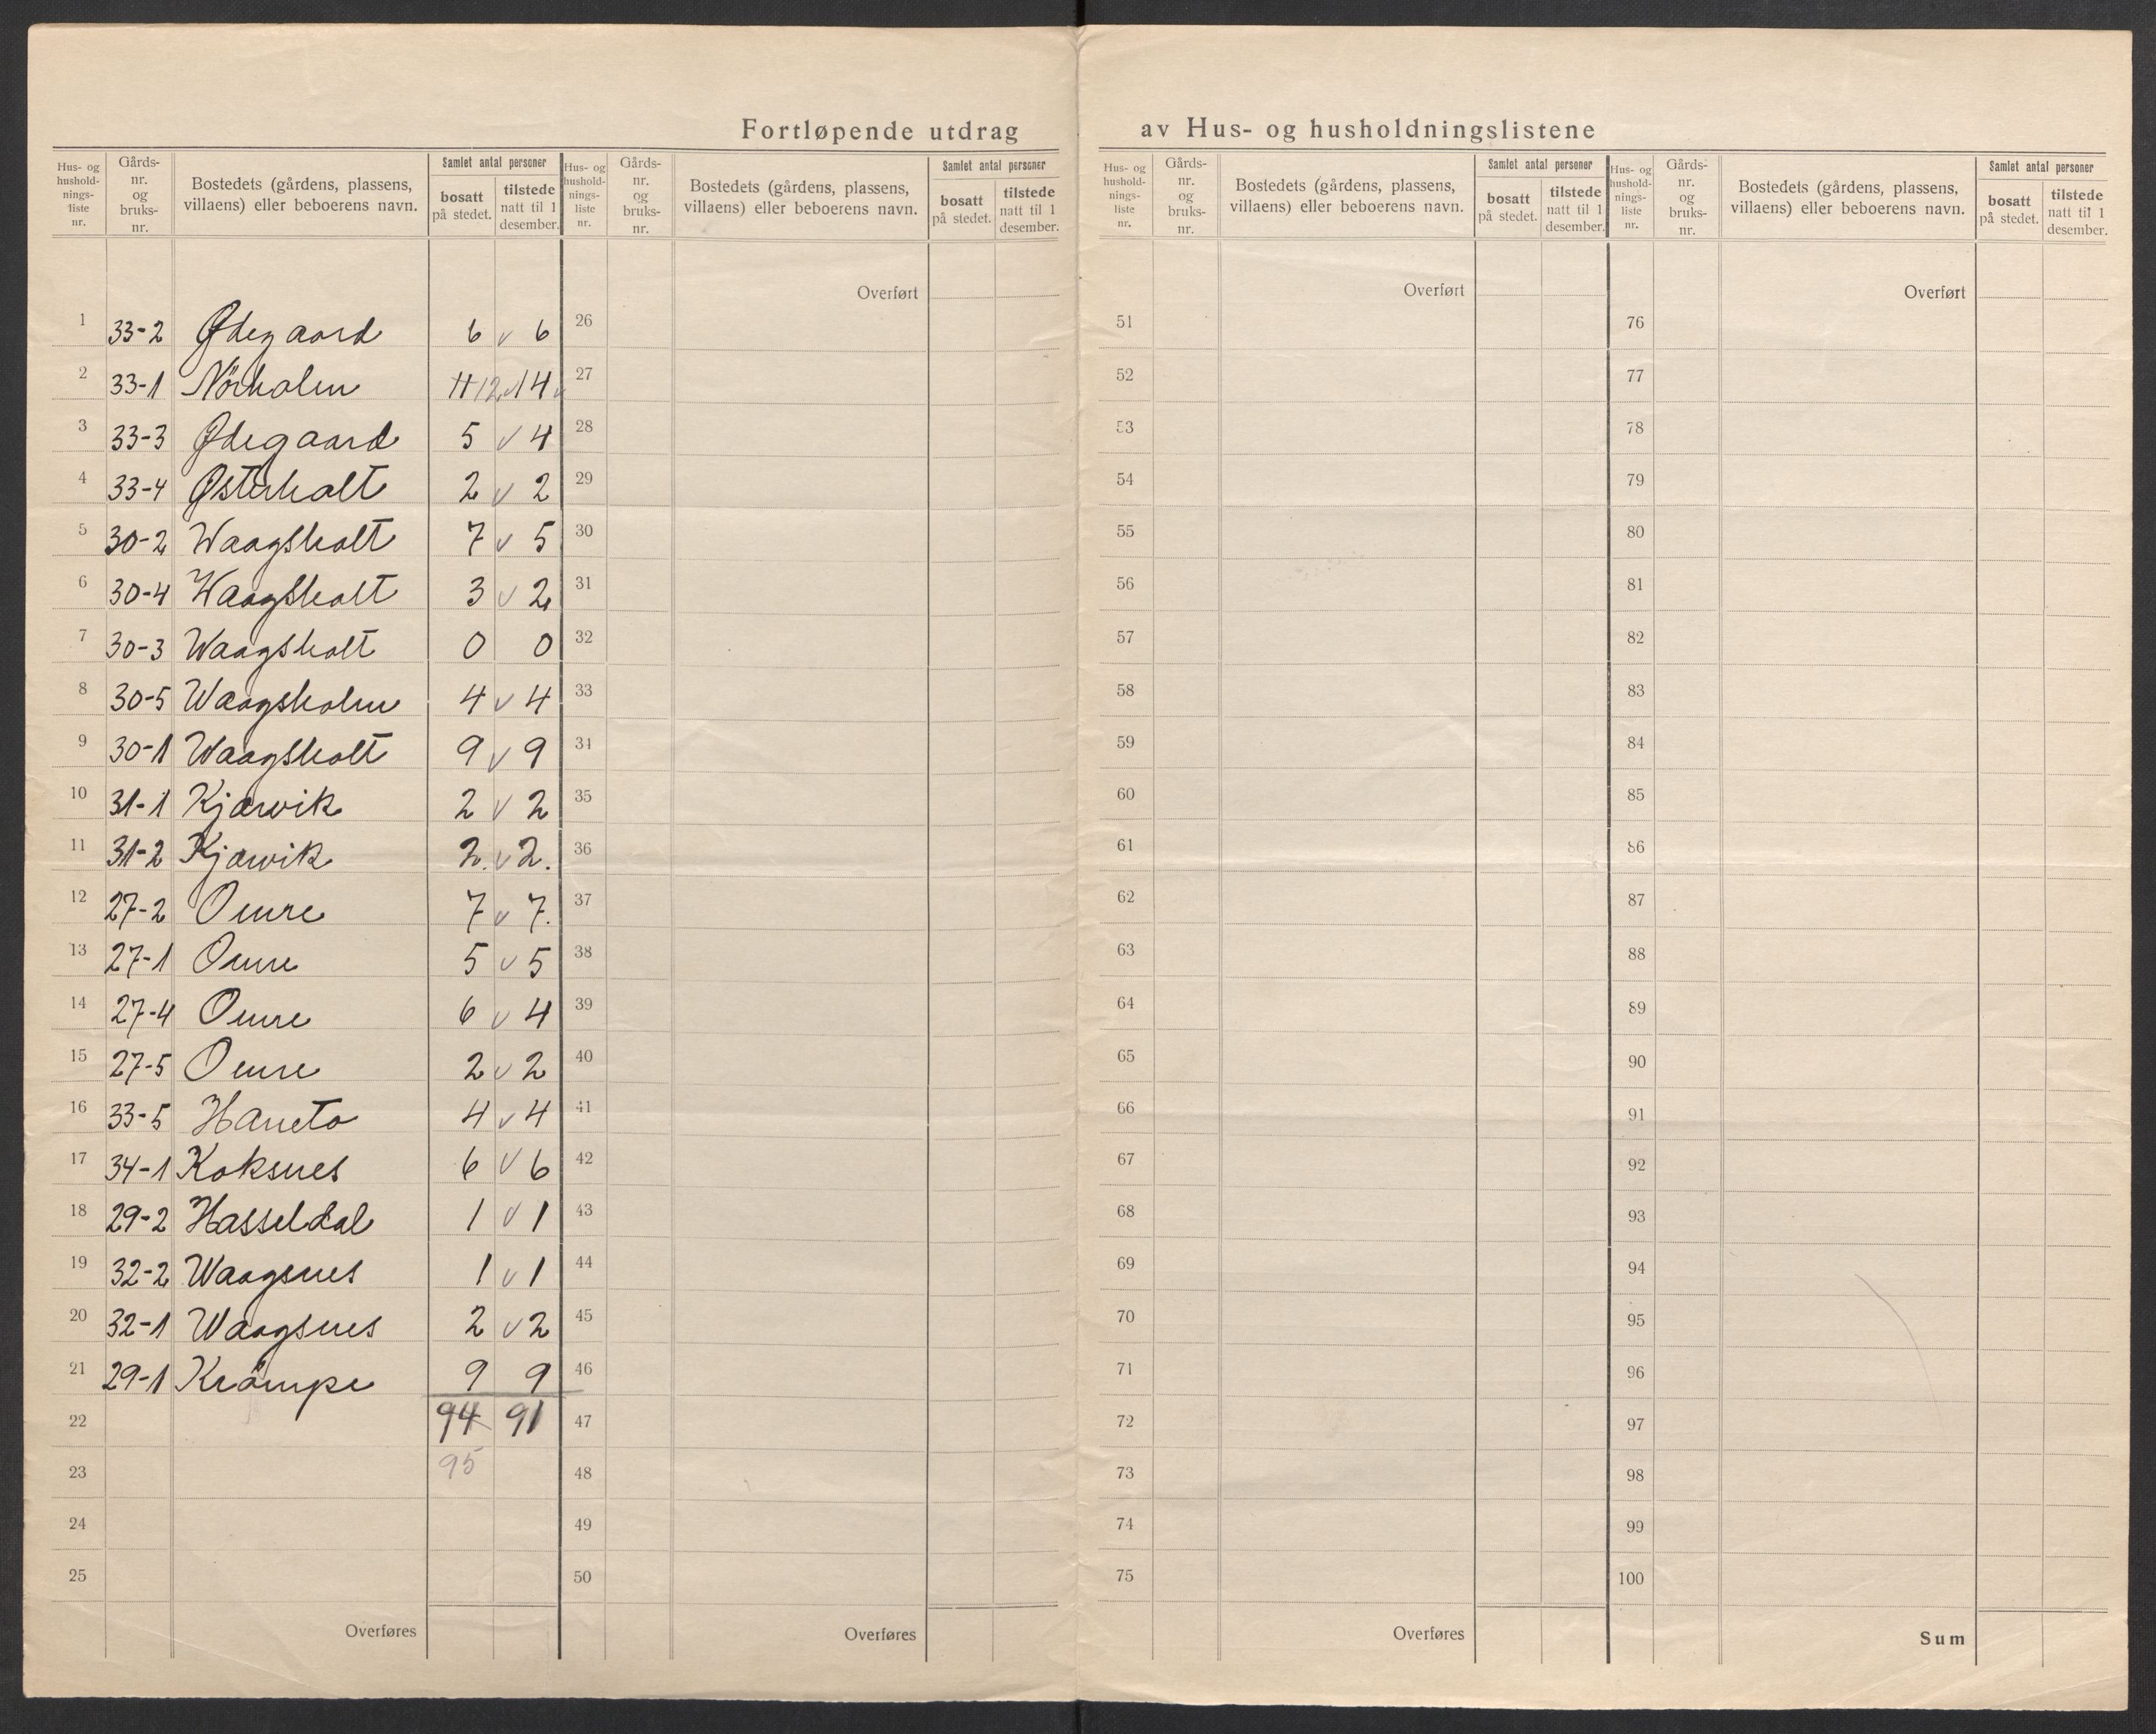 Fortløpende utdrag av Hus- og husholdningslistene
Hus- og husholdnings-liste nr. Gårds-nr. og bruks-nr. Bostedets (gårdens, plassens, villaens) eller beboerens navn. Samlet antal personer bosatt på stedet. tilstede natt til 1 desember.
1 33-2 Ødegaard 6 v 6
2 33-1 Nörholm 11 12 v 14 v
3 33-3 Ødegaard 5 v 4
4 33-4 Østerholt 2 v 2
5 30-2 Waagsholt 7 v 5
6 30-4 Waagsholt 3 v 2
7 30-3 Waagsholt 0 0
8 30-5 Waagsholm 4 v 4
9 30-1 Waagsholt 9 v 9
10 31-1 Kjærvik 2 v 2
11 31-2 Kjærvik 2. v 2.
12 27-2 Omre 7 v 7.
13 27-1 Omre 5 v 5
14 27-4 Omre 6 v 4
15 27-5 Omre 2 v 2
16 33-5 Haneto 4 v 4
17 34-1 Koksnes 6 v 6
18 29-2 Hasseldal 1 v 1
19 32-2 Waagsnes 1 v 1
20 32-1 Waagsnes 2 v 2
21 29-1 Krömpe 9 9
22 94 91
23 95
24
25
Overføres
Hus- og husholdnings-liste nr. Gårds-nr. og bruks-nr. Bostedets (gårdens, plassens, villaens) eller beboerens navn. Samlet antal personer bosatt på stedet. tilstede natt til 1 desember.
Overført
26
27
28
29
30
31
32
33
34
35
36
37
38
39
40
41
42
43
44
45
46
47
48
49
50
Overføres
Hus- og husholdnings-liste nr. Gårds-nr. og bruks-nr. Bostedets (gårdens, plassens, villaens) eller beboerens navn. Samlet antal personer bosatt på stedet. tilstede natt til 1 desember.
Overført
51
52
53
54
55
56
57
58
59
60
61
62
63
64
65
66
67
68
69
70
71
72
73
74
75
Overføres
Hus- og husholdnings-liste nr. Gårds-nr. og bruks-nr. Bostedets (gårdens, plassens, villaens) eller beboerens navn. Samlet antal personer bosatt på stedet. tilstede natt til 1 desember.
Overført
76
77
78
79
80
81
82
83
84
85
86
87
88
89
90
91
92
93
94
95
96
97
98
99
100
Sum